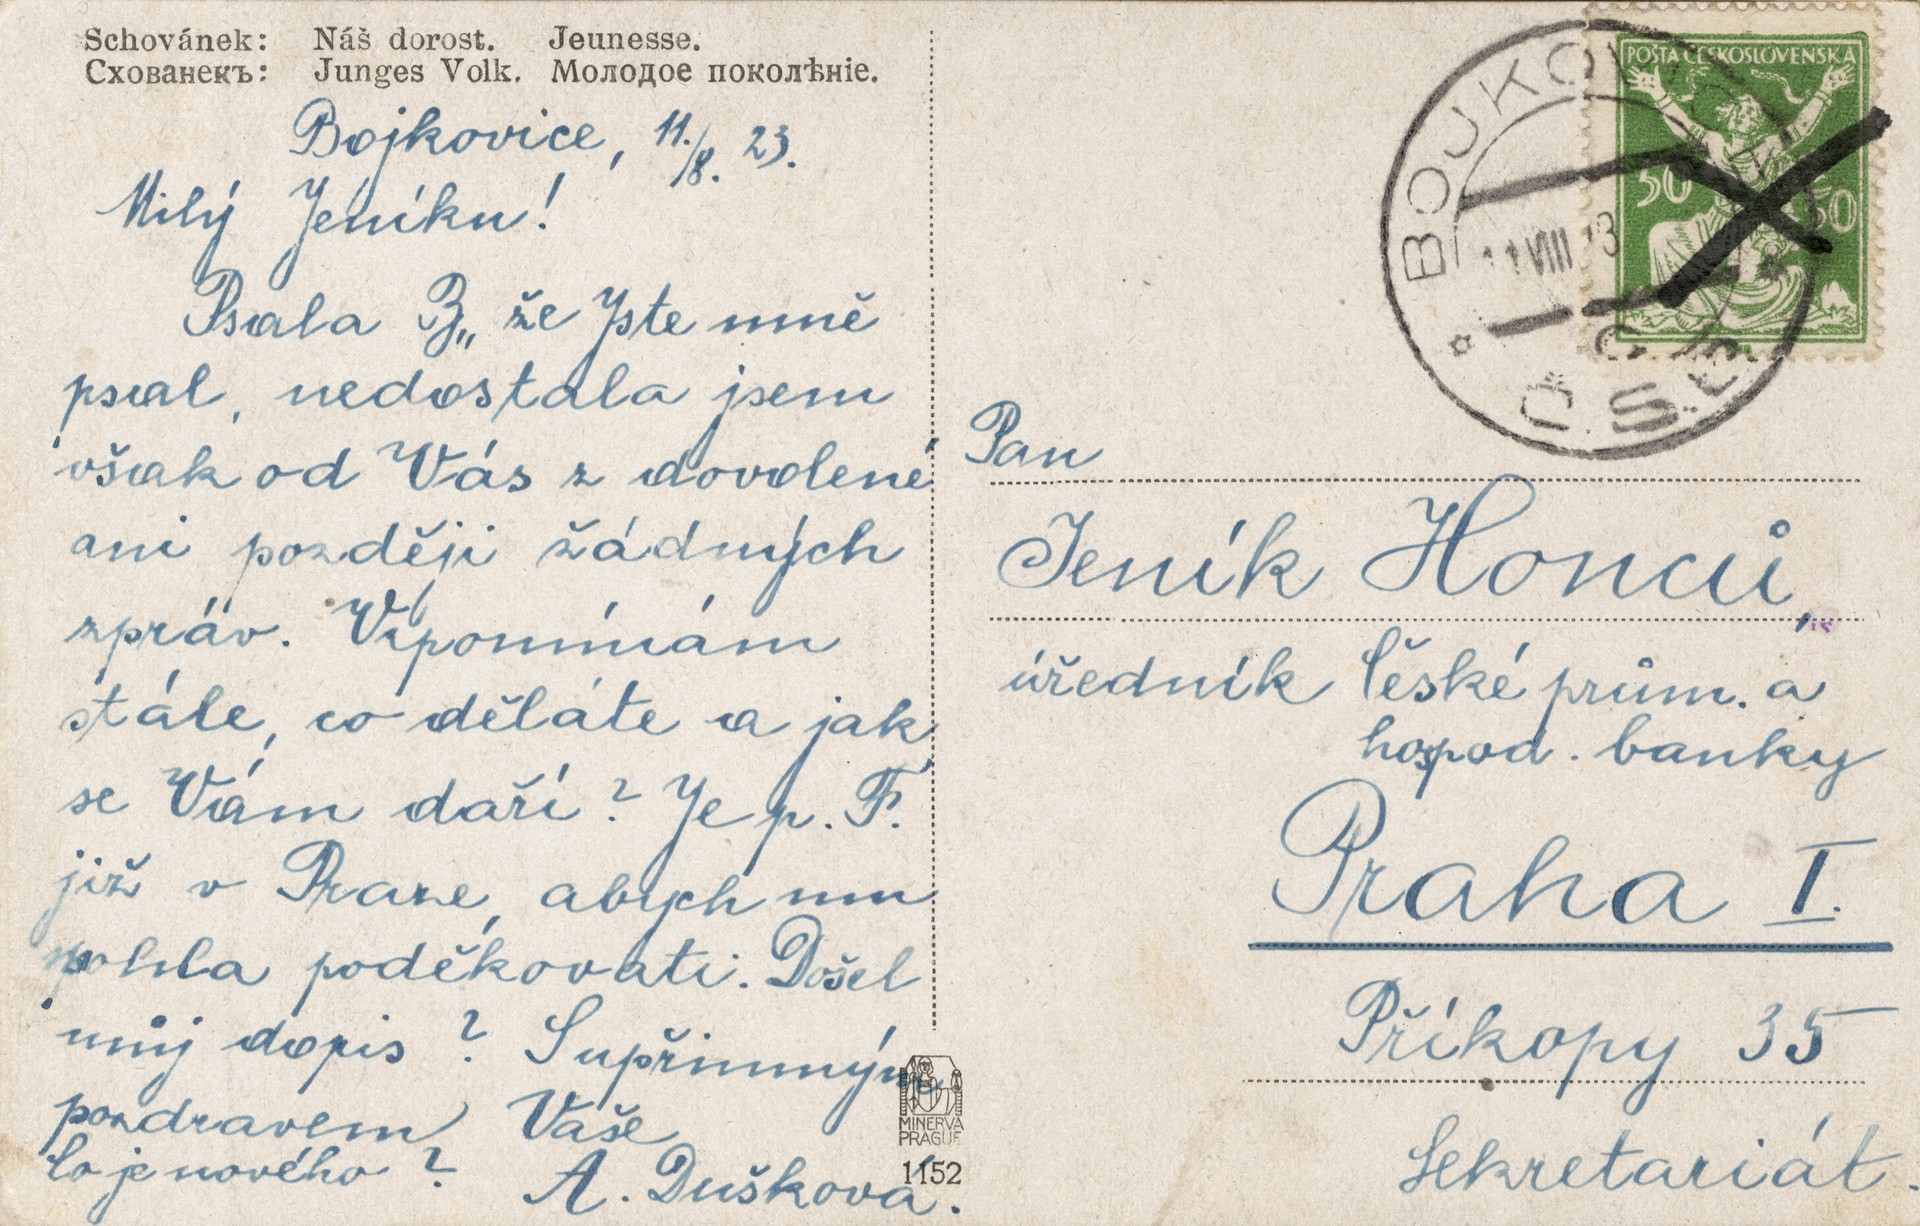 Schovánek: Náš dorost. Jeunesse.
Схованекъ: Junges Volk. Молодое поколѣніе.
Bojkovice, 11./8. 23.
Milý Jeníku!
Psala B„ že Jste mně
psal, nedostala jsem
však od Vás z dovolené
ani později žádných
zpráv. Vzpomínám
stále, co děláte a jak
se Vám daří? Je p. F.
již v Praze, abych mu
mohla poděkovati. Došel
můj dopis? S upřímným
pozdravem Vaše
Co je nového? A. Dušková.
MINERVA
PRAGUE
1152
POŠTA ČESKOSLOVENSKÁ
50 50
BOJKOV
11 VIII 23
Č.S.P.
Pan
Jeník Honců,
úředník České prům. a
hospod. banky
Praha I.
Příkopy 35
Sekretariát.